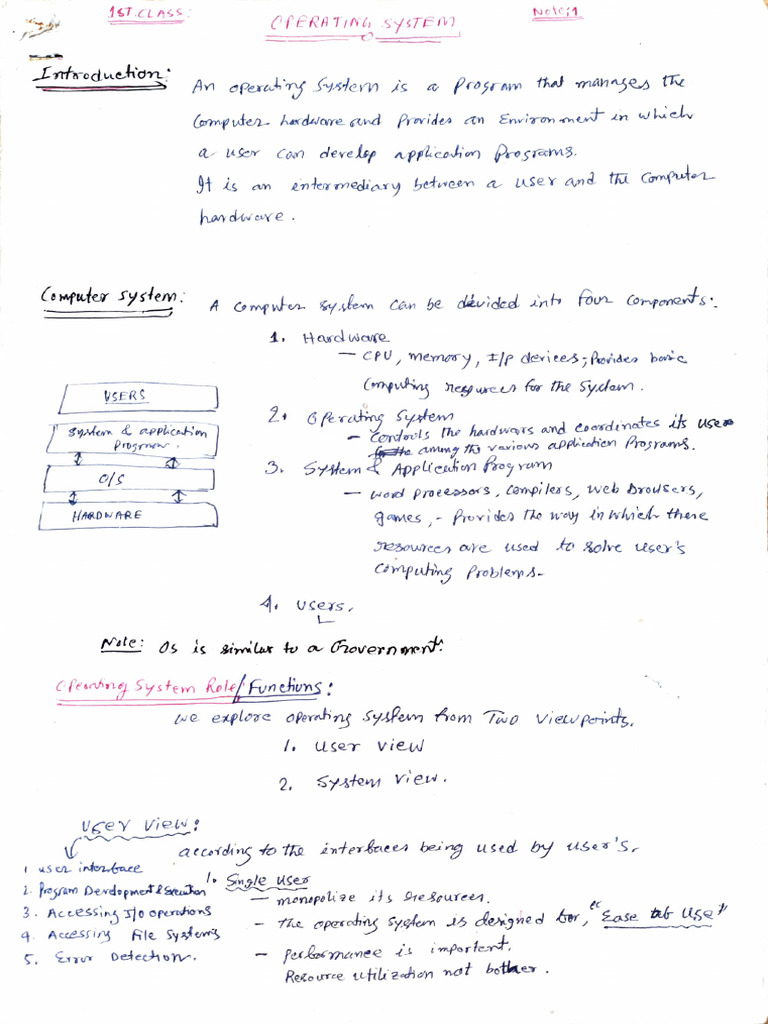 1ST. CLASS:
OPERATING SYSTEM
Note: 1
Introduction:
An operating System is a Program that manages the
Computer hardware and Provides an Environment in which
a user can develop application Programs.
It is an intermediary between a user and the Computer
hardware.
Computer System:
A Computer System can be divided into four Components:
1. Hardware
- CPU, memory, I/P devices; Provides basic
Computing resources for the System.
2. Operating System
- Controls the hardware and coordinates its use
among the various application Programs.
3. System & Application Program
- word processors, Compilers, web browsers,
games, - Provides the way in which these
resources are used to solve user's
Computing Problems-
4. Users.
USERS
System & application
Program.
O/S
HARDWARE
Note: OS is similar to a Government:
Operating System Role/Functions:
we explore operating System from Two Viewpoints.
1. User View
2. System View.
User View:
according to the interfaces being used by user's.
1 user interface
2. Program Development & Execution
3. Accessing I/O operations
4. Accessing File Systems
5. Error Detection.
1. Single User
- monopolize its resources.
- the operating System is designed for, "Ease of Use"
- performance is important.
Resource utilization not bother.